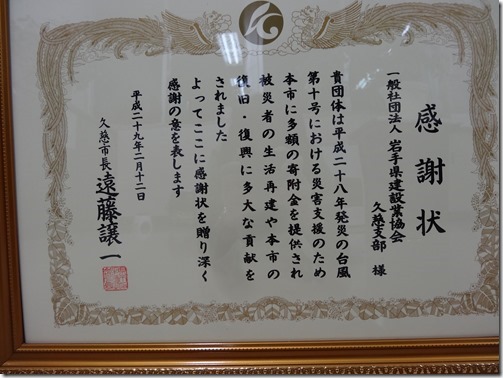 感謝状
一般社団法人 岩手県建設業協会
久慈支部 様
貴団体は平成二十八年発災の台風
第十号における災害支援のため
本市に多額の寄附金を提供され
被災者の生活再建や本市の
復旧・復興に多大な貢献を
されました
よってここに感謝状を贈り深く
感謝の意を表します
平成二十九年二月十二日
久慈市長 遠藤譲一